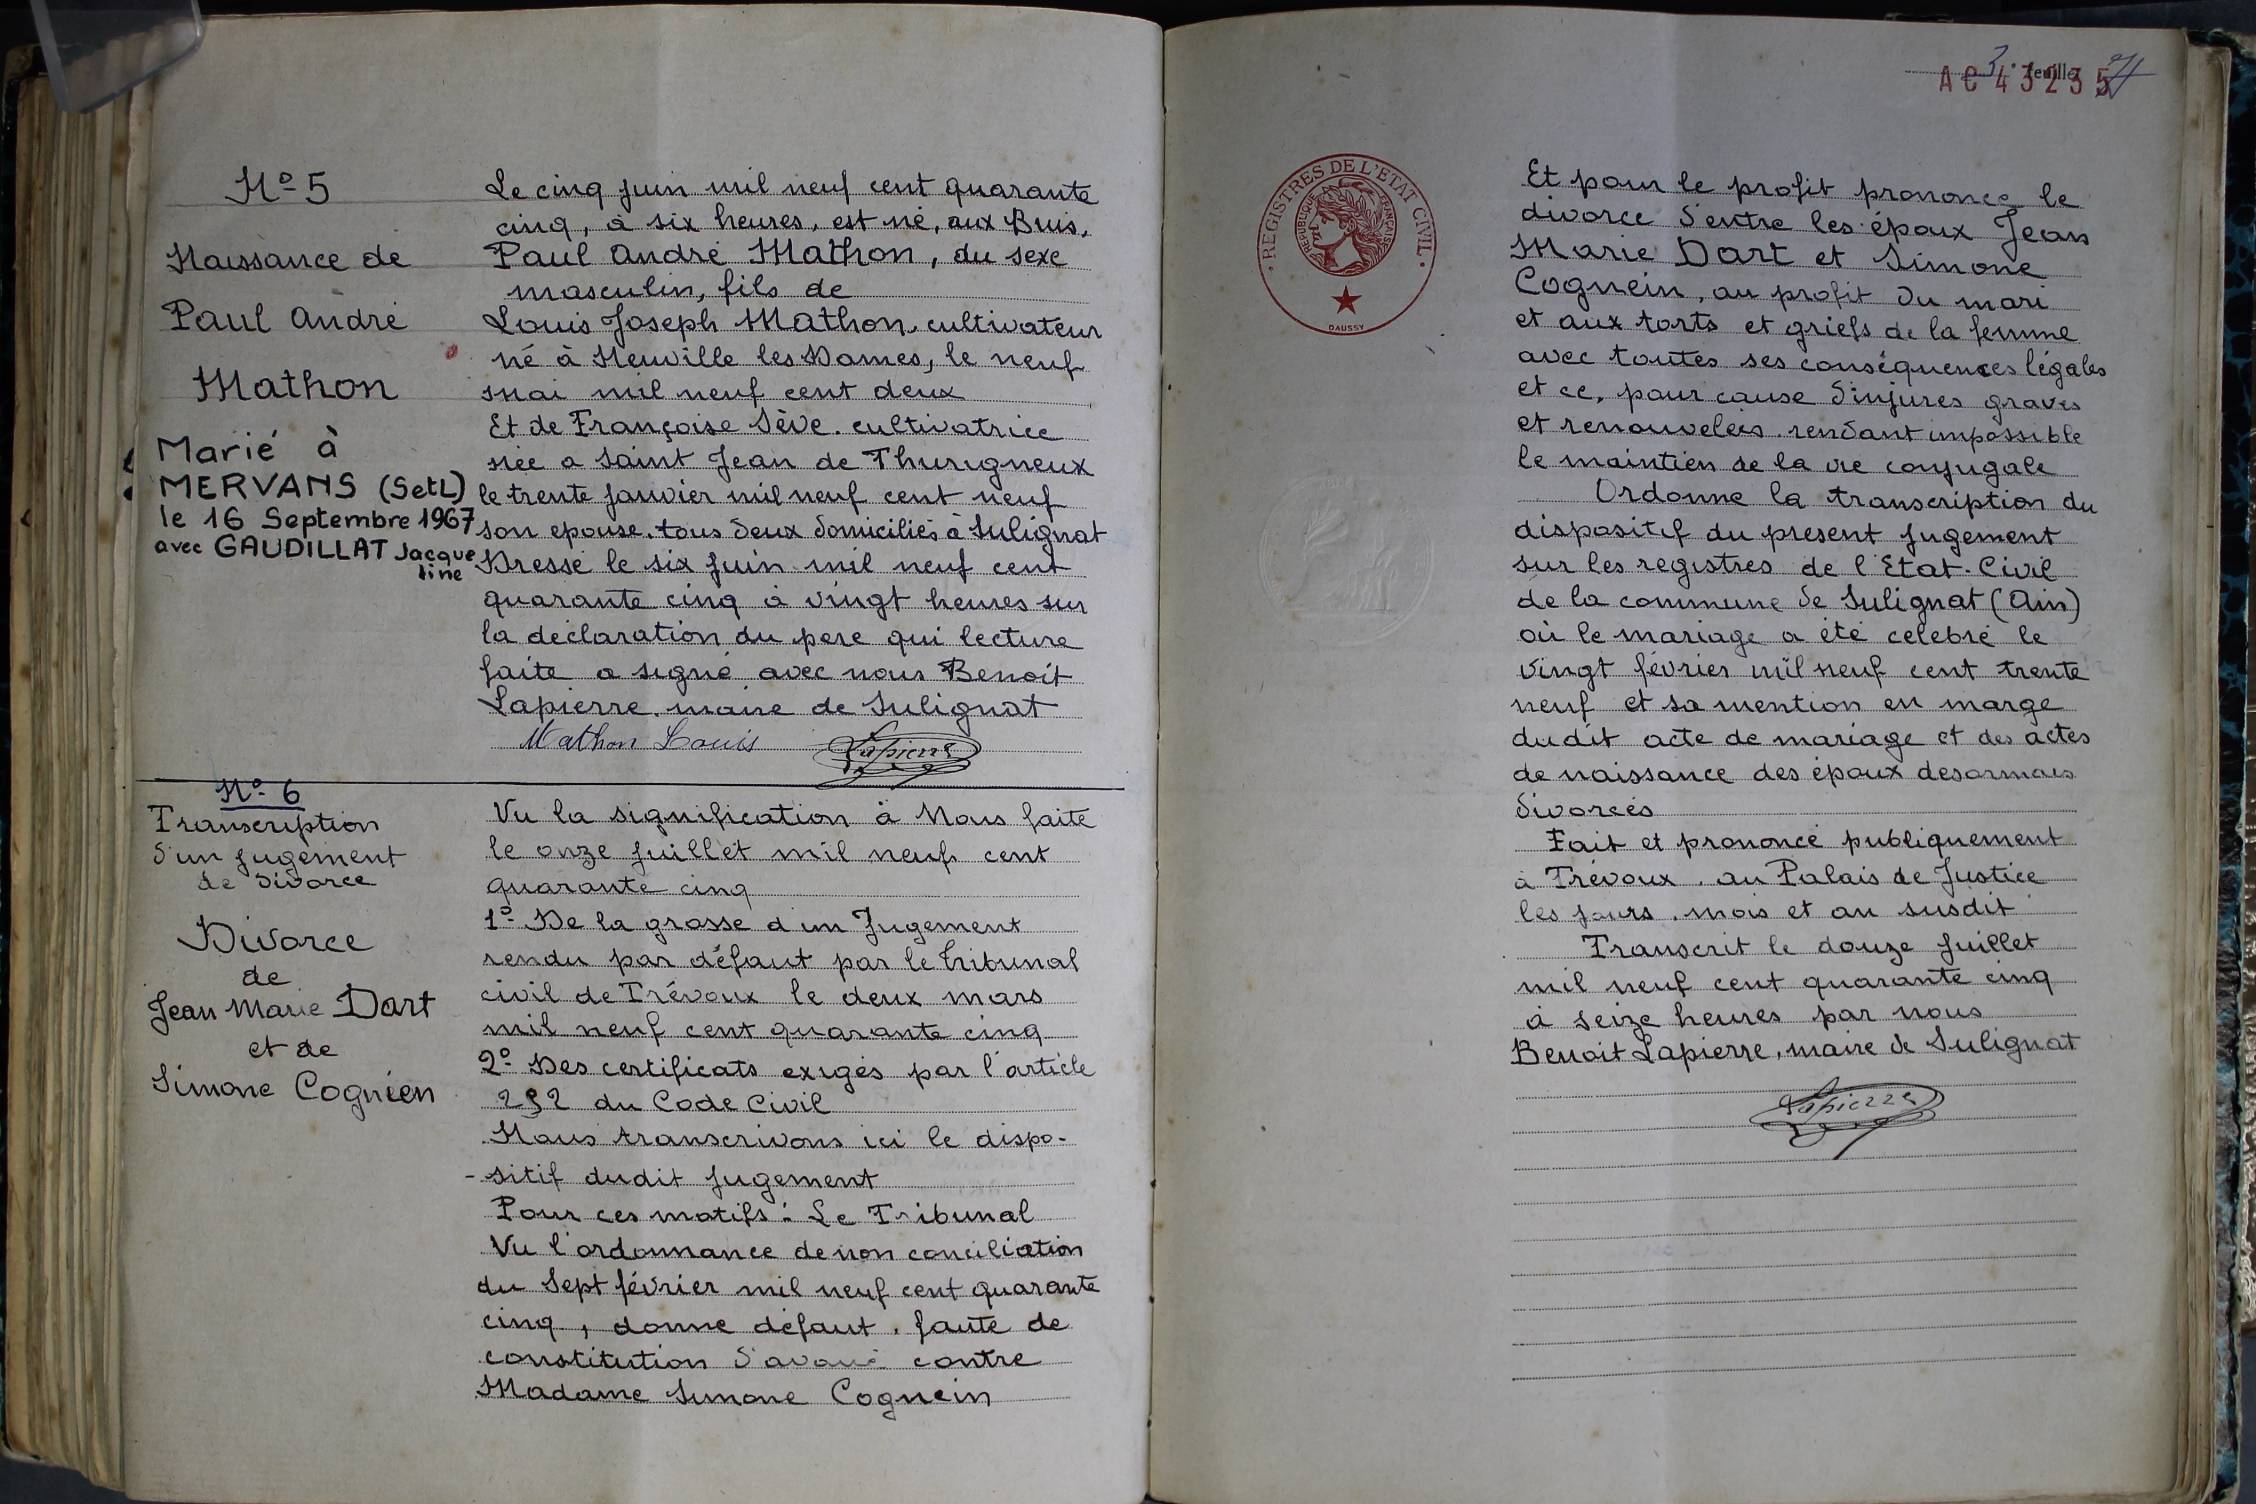 Nº 5
Naissance de
Paul André
Mathon
Marié à
MERVANS (SetL)
le 16 Septembre 1967
avec GAUDILLAT Jacque
line
Le cinq juin mil neuf cent quarante
cinq, à six heures, est né, aux Bruis,
Paul André Mathon, du sexe
masculin, fils de
Louis Joseph Mathon, cultivateur
né à Neuville les Dames, le neuf
mai mil neuf cent deux
Et de Françoise Sève. cultivatrice
née a Saint Jean de Thurigneux
le trente janvier mil neuf cent neuf
son epouse. tous deux domiciliés à Sulignat
Dressé le six juin mil neuf cent
quarante cinq à vingt heures sur
la déclaration du pere qui lecture
faite a signé avec nous Benoit
Lapierre. maire de Sulignat
Mathon Louis Lapierre
Nº 6
Transcription
d'un jugement
de divorce
Divorce
de
Jean Marie Dart
et de
Simone Cognien
Vu la signification à Nous faite
le onze juillet mil neuf cent
quarante cinq
1º De la grosse d'un Jugement
rendu par défaut par le tribunal
civil de Trévoux le deux mars
mil neuf cent quarante cinq
2º Des certificats exigés par l'article
252 du Code Civil
Nous transcrivons ici le dispo-
-sitif dudit jugement
Pour ces motifs: Le Tribunal
Vu l'ordonnance de non conciliation
du Sept février mil neuf cent quarante
cinq, donne défaut. faute de
constitution d'avoué contre
Madame Simone Cognein
3e feuillet
AC43235
REGISTRES DE L'ETAT CIVIL
REPUBLIQUE FRANÇAISE
DAUSSY
Et pour le profit prononce le
divorce d'entre les époux Jean
Marie Dart et Simone
Cognein, au profit du mari
et aux torts et griefs de la femme
avec toutes ses conséquences légales
et ce, pour cause d'injures graves
et renouvelées rendant impossible
le maintien de la vie conjugale
Ordonne la transcription du
dispositif du present jugement
sur les registres de l'Etat-Civil
de la commune de Sulignat (Ain)
où le mariage a été celebré le
vingt février mil neuf cent trente
neuf et sa mention en marge
dudit acte de mariage et des actes
de naissance des époux desormais
divorcés
Fait et prononcé publiquement
à Trévoux. au Palais de Justice
les jours. mois et an susdit
Transcrit le douze juillet
mil neuf cent quarante cinq
à seize heures par nous
Benoit Lapierre, maire de Sulignat
Lapierre